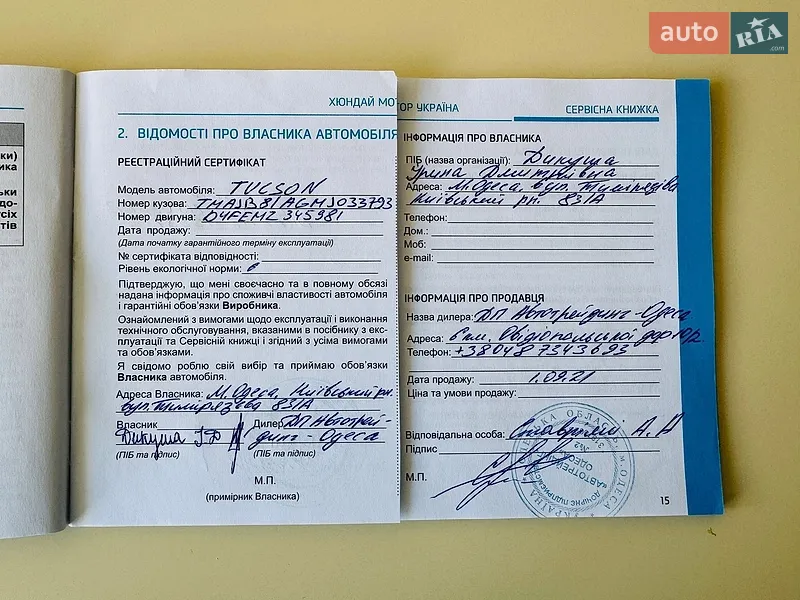 auto RIA .com
ки)
ика
ьки
до-
сіх
тів
ХЮНДАЙ МО
2. ВІДОМОСТІ ПРО ВЛАСНИКА АВТОМОБІЛЯ
РЕЄСТРАЦІЙНИЙ СЕРТИФІКАТ
Модель автомобіля: TUCSON
Номер кузова: TMAJB81AGMJ033793
Номер двигуна: D4FEMZ345981
Дата продажу:
(Дата початку гарантійного терміну експлуатації)
№ сертифіката відповідності:
Рівень екологічної норми: 6
Підтверджую, що мені своєчасно та в повному обсязі
надана інформація про споживчі властивості автомобіля
і гарантійні обов'язки Виробника.
Ознайомлений з вимогами щодо експлуатації і виконання
технічного обслуговування, вказаними в посібнику з екс-
плуатації та Сервісній книжці і згідний з усіма вимогами
та обов'язками.
Я свідомо роблю свій вибір та приймаю обов'язки
Власника автомобіля.
Адреса Власника: М.Одеса, Київський рн.
вул.Тимірязєва 83/А
Власник Дилер ДП Автотрей-
Дикуша І.Д динг-Одеса
(ПІБ та підпис) (ПІБ та підпис)
М.П.
(примірник Власника)
ОР УКРАЇНА
СЕРВІСНА КНИЖКА
ІНФОРМАЦІЯ ПРО ВЛАСНИКА
ПІБ (назва організації): Дикуша
Ірина Дмитрівна
Адреса: М.Одеса, вул. Тимірязєва
Київський рн. 83/А
Телефон:
Дом.:
Моб:
e-mail:
ІНФОРМАЦІЯ ПРО ПРОДАВЦЯ
Назва дилера: ДП Автотрейдинг-Одеса
Адреса: 6 км. Овідіопольської дороги
Телефон: +380487343693
Дата продажу: 1.09.21
Ціна та умови продажу:
Відповідальна особа: А.А
Підпис
М.П.
15